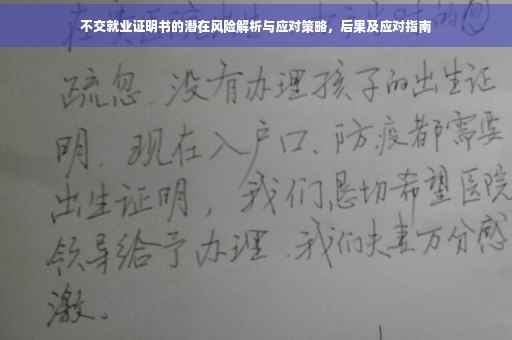 不交就业证明书的潜在风险解析与应对策略，后果及应对指南
疏忽、没有办理孩子的出生证
明、现在入户口、防疫都需要
出生证明，我们恳切希望医院
领导给予办理、我们夫妻万分感
激。